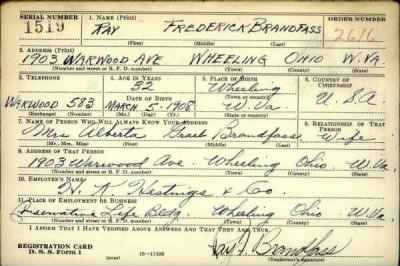 SERIAL NUMBER 1. NAME (Print) ORDER NUMBER
1519 RAY FREDERICK BRANDFASS 2616
(First) (Middle) (Last)
2. ADDRESS (Print)
1903 WARWOOD AVE WHEELING OHIO W.VA.
(Number and street or R. F. D. number) (Town) (County) (State)
3. TELEPHONE 4. AGE IN YEARS 5. PLACE OF BIRTH 6. COUNTRY OF CITIZENSHIP
32 Wheeling
DATE OF BIRTH (Town or county)
WARWOOD 583 MARCH 5, 1908 W.Va. U.S.A.
(Exchange) (Number) (Mo.) (Day) (Yr.) (State or country)
7. NAME OF PERSON WHO WILL ALWAYS KNOW YOUR ADDRESS 8. RELATIONSHIP OF THAT PERSON
Mrs Alberta Brandfass Wife
(Mr., Mrs., Miss) (First) (Middle) (Last)
9. ADDRESS OF THAT PERSON
1903 Warwood Ave. Wheeling Ohio W.Va.
(Number and street or R. F. D. number) (Town) (County) (State)
10. EMPLOYER'S NAME
Hastings & Co.
11. PLACE OF EMPLOYMENT OR BUSINESS
Conservative Life Bldg. Wheeling Ohio W.Va.
(Number and street or R. F. D. number) (Town) (County) (State)
I AFFIRM THAT I HAVE VERIFIED ABOVE ANSWERS AND THAT THEY ARE TRUE.
REGISTRATION CARD
D. S. S. Form 1 Ray F. Brandfass
(Registrant's signature)